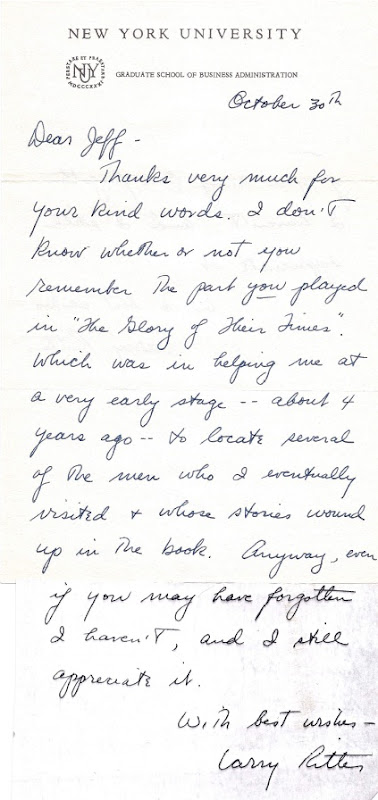 NEW YORK UNIVERSITY
PERSTARE ET PRAESTARE
NYU
MDCCCXXXI
GRADUATE SCHOOL OF BUSINESS ADMINISTRATION
October 30th
Dear Jeff -
Thanks very much for
your kind words. I don't
know whether or not you
remember the part you played
in "The Glory of Their Times".
Which was in helping me at
a very early stage -- about 4
years ago -- to locate several
of the men who I eventually
visited + whose stories wound
up in the book. Anyway, even
if you may have forgotten
I haven't, and I still
appreciate it.
With best wishes -
Larry Ritter